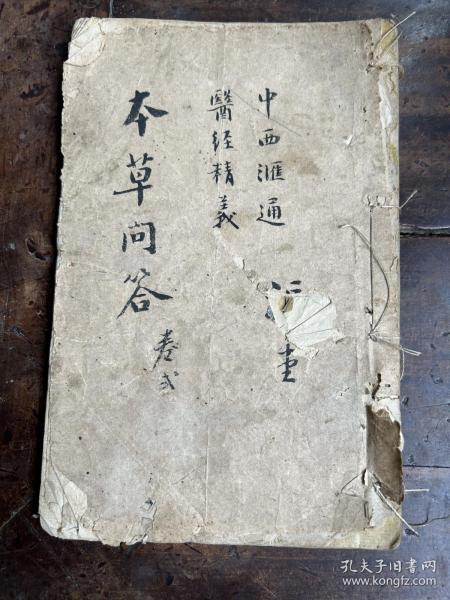 中西滙通
醫经精義
本草问答
卷弍
孔夫子旧书网
www.kongfz.com